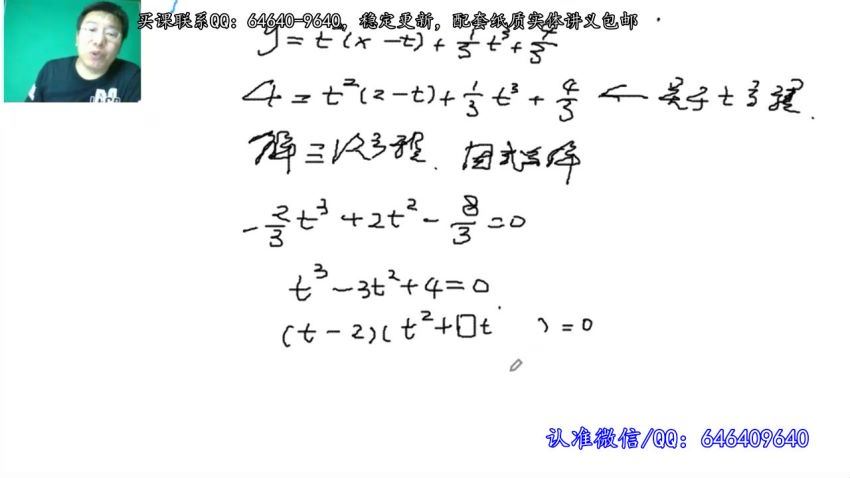 买课联系QQ：64640-9640，稳定更新，配套纸质实体讲义包邮
y = t²(x - t) + 1/3 t³ + 4/3
4 = t²(2 - t) + 1/3 t³ + 4/3 ← 关于t方程.
解三次方程. 因式分解
- 2/3 t³ + 2t² - 8/3 = 0
t³ - 3t² + 4 = 0
(t - 2)( t² + □t ) = 0
认准微信/QQ：646409640